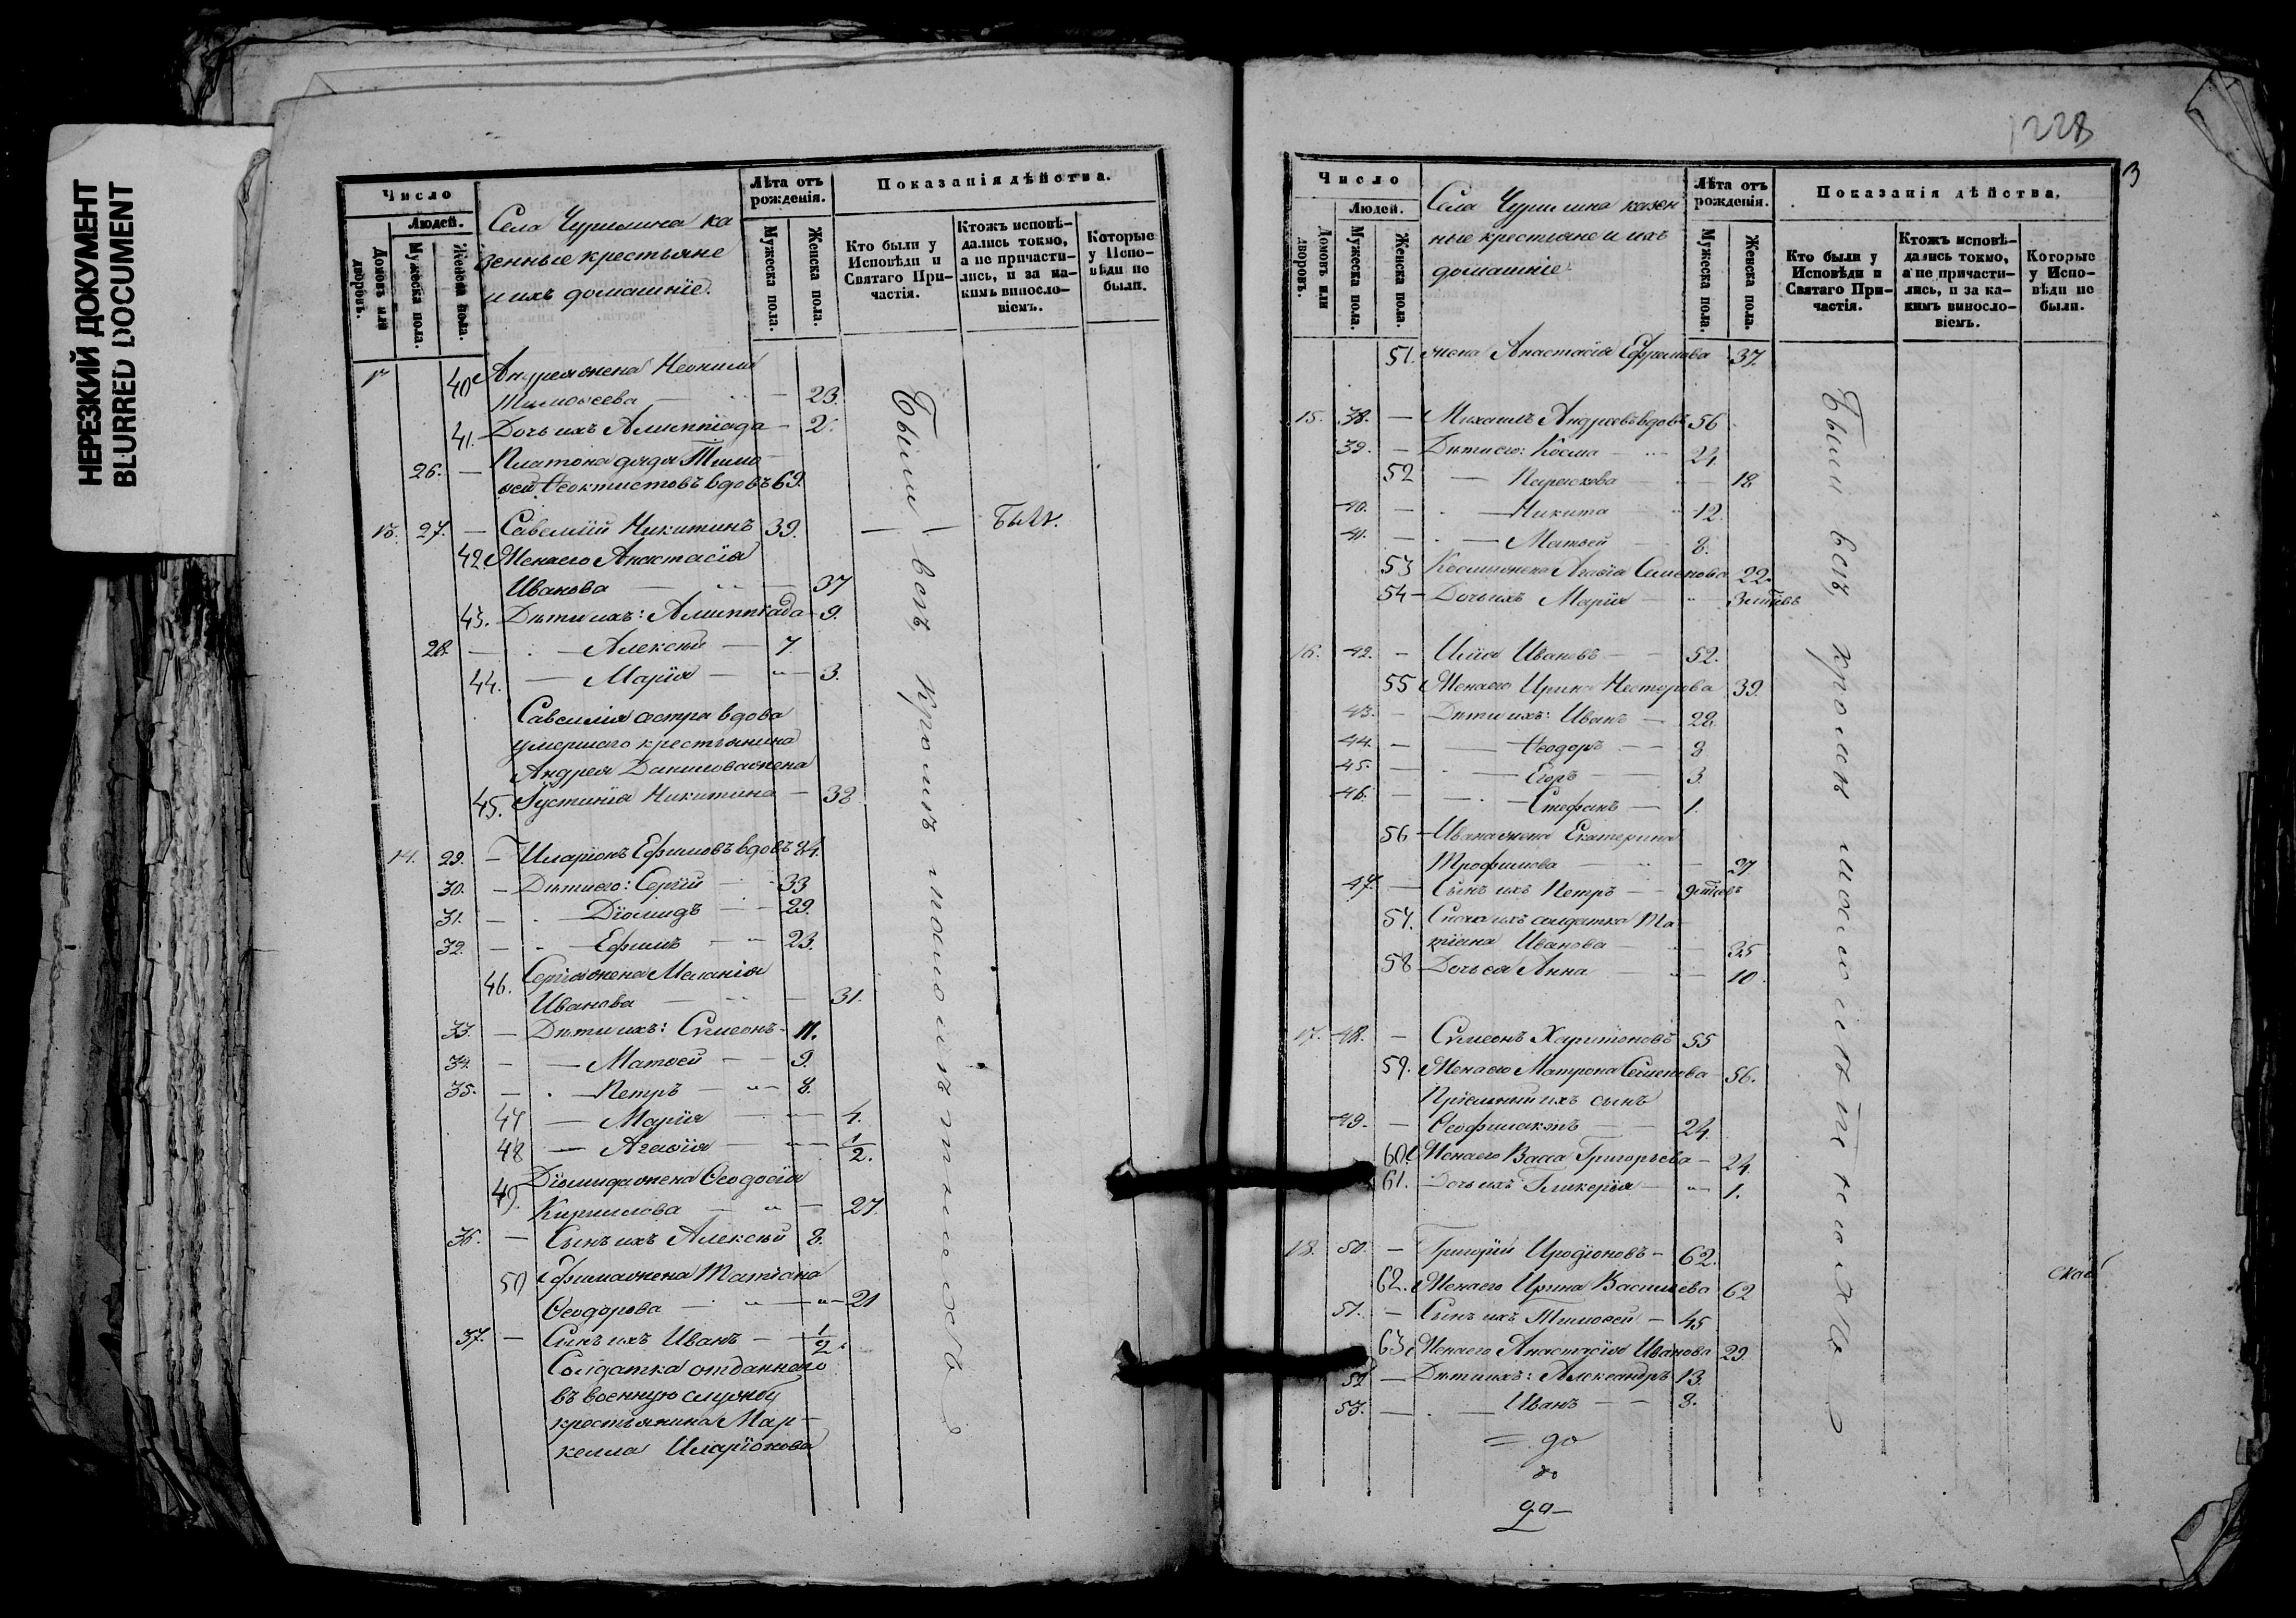 НЕРЕЗКИЙ ДОКУМЕНТ
BLURRED DOCUMENT
Число
Людей.
Домовъ или дворовъ.
Мужеска пола.
Женска пола.
Села Чурилина ка
зенные крестьяне
и ихъ домашніе.
Лѣта отъ рожденія.
Мужеска пола.
Женска пола.
Показанія дѣйства.
Кто были у Исповѣди и Святаго Причастія.
Ктожъ исповѣдались токмо, а не причастились, и за какимъ винословіемъ.
Которые у Исповѣди не были.
40 Андрея жена Неонила
Тимоѳеева — 23.
41. Дочь ихъ Алимпіада — 2.
26. — Платона дядя Тимо
ѳей Ѳеоктистовъ вдовъ 69.
13. 27. — Савелій Никитинъ 39.
42. Жена его Анастасія
Иванова — 37
43. Дѣти ихъ: Алимпіада 9.
28. — Алексѣй — 7.
44. — Марія — 3.
Савелія сестра вдова
умершаго крестьянина
Андрея Данилова жена
45. Іустинія Никитина — 38
14. 29. — Иларіонъ Ефимовъ вдовъ 84.
30. — Дѣти его: Сергій 33
31. — Діомидъ — 29.
32. — Ефимъ — 23.
46. Сергія жена Меланія
Иванова — 31.
33. — Дѣти ихъ: Сѵмеонъ 11.
34. — Матѳей — 9.
35. — Петръ — 8.
47 — Марія — 4.
48 — Агаѳія — 1/2.
49. Діомида жена Ѳеодосія
Кириллова — 27.
36. — Сынъ ихъ Алексѣй 8.
50 Ефима жена Татіана
Ѳеодорова — 21
37. — Сынъ ихъ Иванъ — 1/2.
Солдатка отданнаго
въ военную службу
крестьянина Мар-
келла Иларіонова
Были всѣ, кромѣ
1228
3
Число
Людей.
Домовъ или дворовъ.
Мужеска пола.
Женска пола.
Села Чурилина казен
ные крестьяне и ихъ
домашніе.
Лѣта отъ рожденія.
Мужеска пола.
Женска пола.
Показанія дѣйства.
Кто были у Исповѣди и Святаго Причастія.
Ктожъ исповѣдались токмо, а не причастились, и за какимъ винословіемъ.
Которые у Исповѣди не были.
51. жена Анастасія Ефимова 37.
15. 38. — Михаилъ Андреевъ вдовъ 56
39. — Дѣти его: Косма — 24.
52 — Параскева — 18
40. — Никита — 12.
41. — Матѳей — 8.
53 Космы жена Агаѳія Семенова 22.
54 — Дочь ихъ Марія —
16. 42. — Илія Ивановъ — 52.
55 Жена его Ирина Несторова 39.
43. — Дѣти ихъ: Иванъ — 28.
44. — Ѳеодоръ — 8
45. — Егоръ — 3.
46. — Стефанъ — 1.
56 — Ивана жена Екатерина
Трофимова — 27
47. — Сынъ ихъ Петръ —
57. Сноха ихъ солдатка Та
тіана Иванова — 35
58 Дочь ея Анна — 10
17. 48. — Сѵмеонъ Харитоновъ 55
59. Жена его Матрона Семенова 56.
Пріемный ихъ сынъ
49. — Ѳеофилактъ — 24
60. Жена его Васса Григорьева — 24.
61. Дочь ихъ Гликерія — 1.
18. 50. — Григорій Иродіоновъ — 62.
62. Жена его Ирина Васильева 62
51. — Сынъ ихъ Тимоѳей — 45
63. Жена его Анастасія Иванова 29.
52 — Дѣти ихъ: Александръ 13.
53. — Иванъ — 8.
Были всѣ, кромѣ малолѣтнихъ